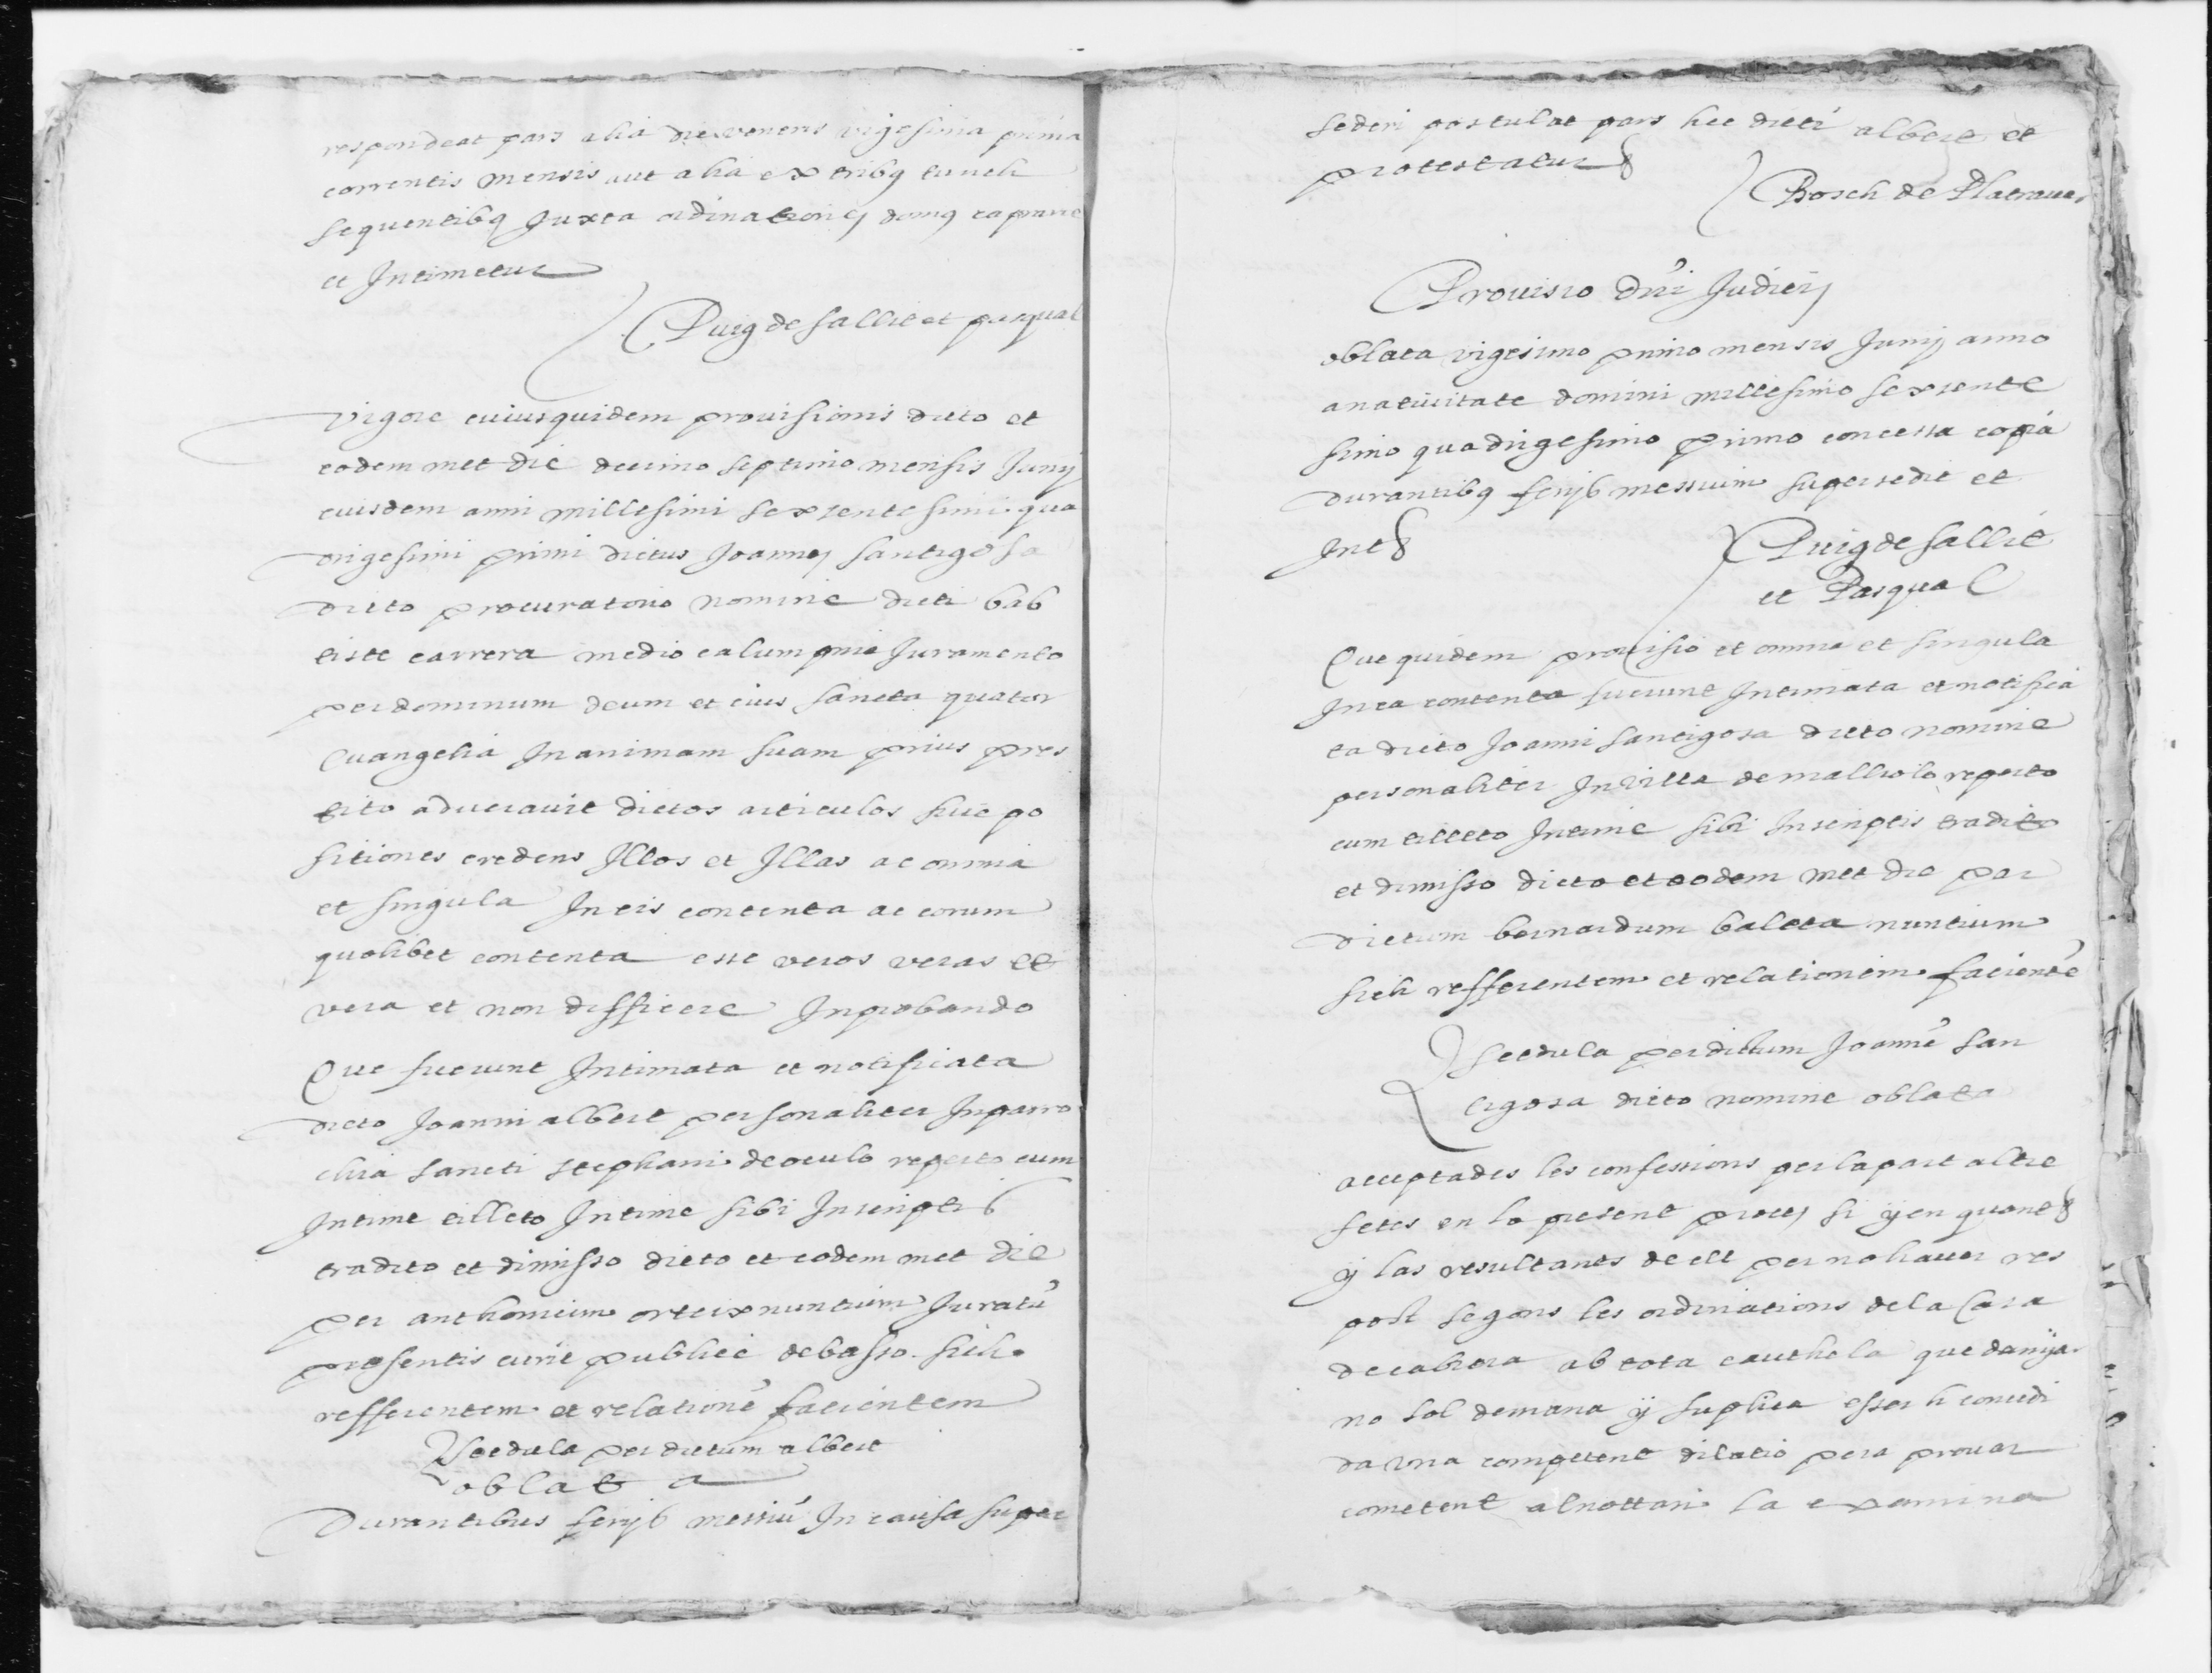 respondeat pars alia die veneris vigesima prima
correntis mensis aut alia ex tribq tunch
sequentibq Juxta ordinationes domq caprarie
et Intimetur
Puig de Sallit et pasqual
Vigore cuiusquidem provisionis dicto et
eodem met die decimo septimo mensis Junij
eiusdem anni millesimi sexsentesimi qua
drigesimi primi dictus Joannes Santigosa
dicto procuratorio nomine dicti bab
tiste carrera medio calumpnie Juramento
per dominum deum et eius sancta quator
Evangelia In animam suam prius pres
tito adveravit dictos articulos sive po
sitiones credens Illos et Illas ac omnia
et singula In eis contenta ac eorum
quolibet contenta esse veros veras et
vera et non defficere In probando
Que fuerunt Intimata et notificata
dicto Joanni albert personaliter In parro
chia sancti stephani de oculo reperto cum
Intime tilleto Intime sibi In scriptis
tradito et dimisso dicto et eodem met die
per anthonium orteix nuntium Juratu
presentis curie publice de basso sich
refferentem et relatione facientem
Scedula per dictum albert
oblata
Durantibus ferijs messiu In causa super
sederi postulat pars hec dicti albert et
protestatur
Bosch de Platraver
Provisio dni Judicis
oblata vigesimo primo mensis Junij anno
a nativitate domini millesimo sexsente
simo quadrigesimo primo concessa copia
durantibq ferijs messium supersedit et
Intt
Puig de Sallit
et Pasqual
Que quidem provisio et omnia et singula
In ea contenta fuerunt Intimata et notifica
ta dicto Joanni Santigosa dicto nomine
personaliter In villa de malliolo reperto
cum tilleto Intime sibi In scriptis tradito
et dimisso dicto et eodem met die per
dictum bernardum baleta nuntium
sich refferentem et relationem faciente
Scedula per dictum Joanne San
tigosa dicto nomine oblata
acceptades les confessions per la part altre
fetes en lo present proces si y en quant
y las resultants de ell per no haver res
post segons les ordinations de la Casa
de cabrera ab tota cauthela que danyar
no sol demana y suplica esser li concedi
da una competent dilatio pera provar
cometent al nottari la examina